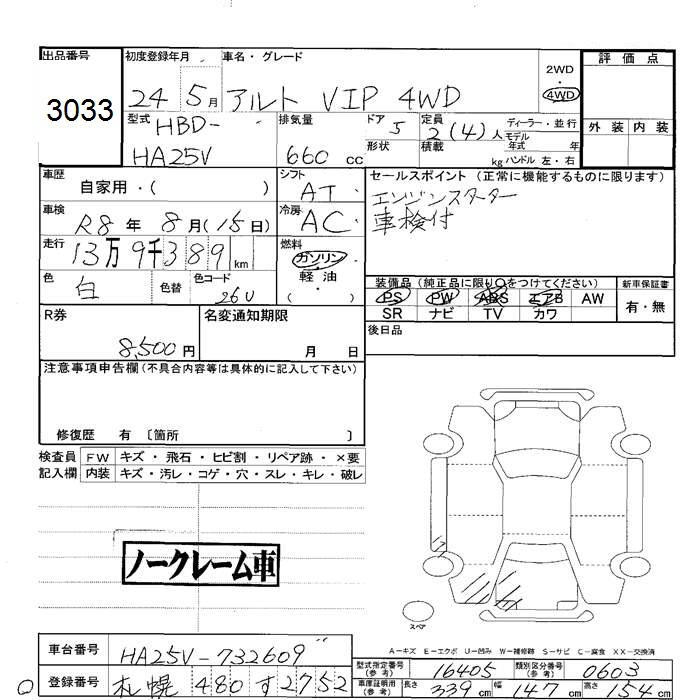 出品番号
3033
初度登録年月
24 5月
車名・グレード
アルト VIP 4WD
2WD
・
4WD
評価点
外装 内装
型式 HBD-
HA25V
排気量
660 cc
ドア 5
形状
定員 2(4)人
積載 kg
ディーラー・並行
モデル年式 年
ハンドル 左・右
車歴
自家用・( )
シフト
AT
セールスポイント (正常に機能するものに限ります)
エンジンスターター
車検付
車検
R8年 8月(15日)
冷房
AC
走行
13万9千389 km
燃料
ガソリン
・
軽油
( )
色
白
色替
色コード
26U
装備品(純正品に限り○をつけてください)
PS PW ABS エアB AW
SR ナビ TV カワ
新車保証書
有・無
R券
8,500円
名変通知期限
月 日
後日品
注意事項申告欄(不具合内容等は具体的に記入して下さい)
修復歴 有 〔箇所 〕
検査員 FW キズ・飛石・ヒビ割・リペア跡・×要
記入欄 内装 キズ・汚レ・コゲ・穴・スレ・キレ・破レ
ノークレーム車
スペア
A-キズ E-エクボ U-凹み W-補修跡 S-サビ C-腐食 XX-交換済
車台番号
HA25V-732609
型式指定番号(参考)
16405
類別区分番号(参考)
0603
登録番号
札幌 480 す2752
車庫証明用(参考)
長さ 339cm 幅 147cm 高さ 154cm